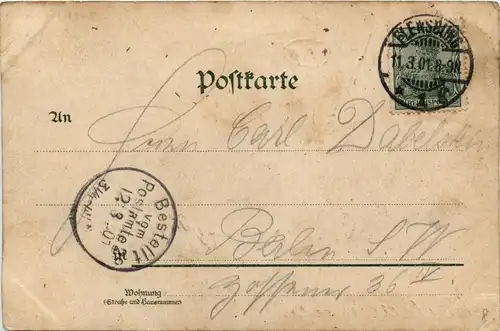 FLENSBURG
11.3.01.8-9N
* 1 c
Postkarte
An
Herrn Carl Dabelstein
Bestellt
vom
Postamte
12 3. 01
in Berlin S.W
Zossener 36 IV
Wohnung
(Straße und Hausnummer)
8